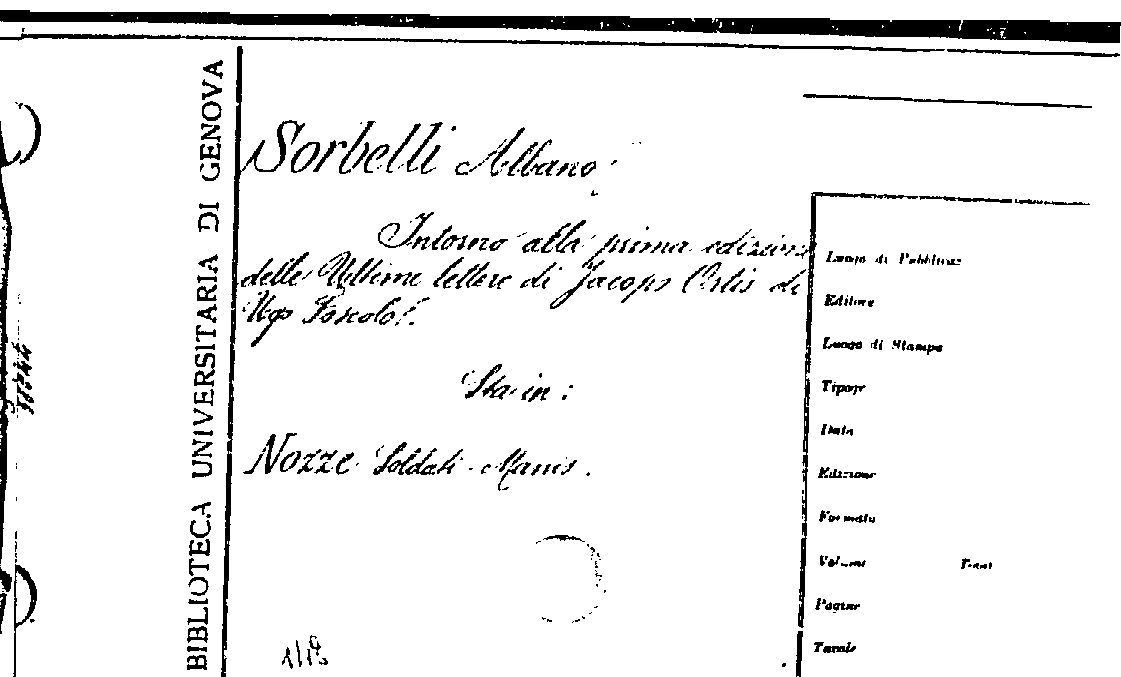 BIBLIOTECA UNIVERSITARIA DI GENOVA
Sorbelli Albano
Intorno alla prima edizione
delle Ultime lettere di Jacopo Ortis di
Ugo Foscolo.
Sta in:
Nozze Soldati-Manis.
Luogo di Pubblicaz
Editore
Luogo di Stampa
Tipogr
Data
Edizione
Formato
Volumi Tomi
Pagine
Tavole